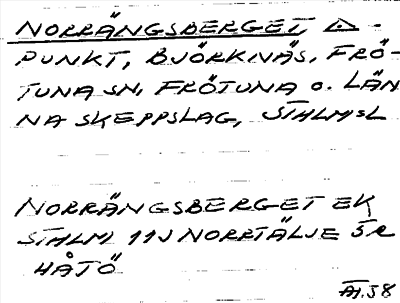 NORRÄNGSBERGET, △-
PUNKT, BJÖRKNÄS, FRÖ-
TUNA SN, FRÖTUNA O. LÄN
NA SKEPPSLAG, STHLMSL
NORRÄNGSBERGET EK
STHLM 11J NORRTÄLJE 5R
HÅTÖ
38